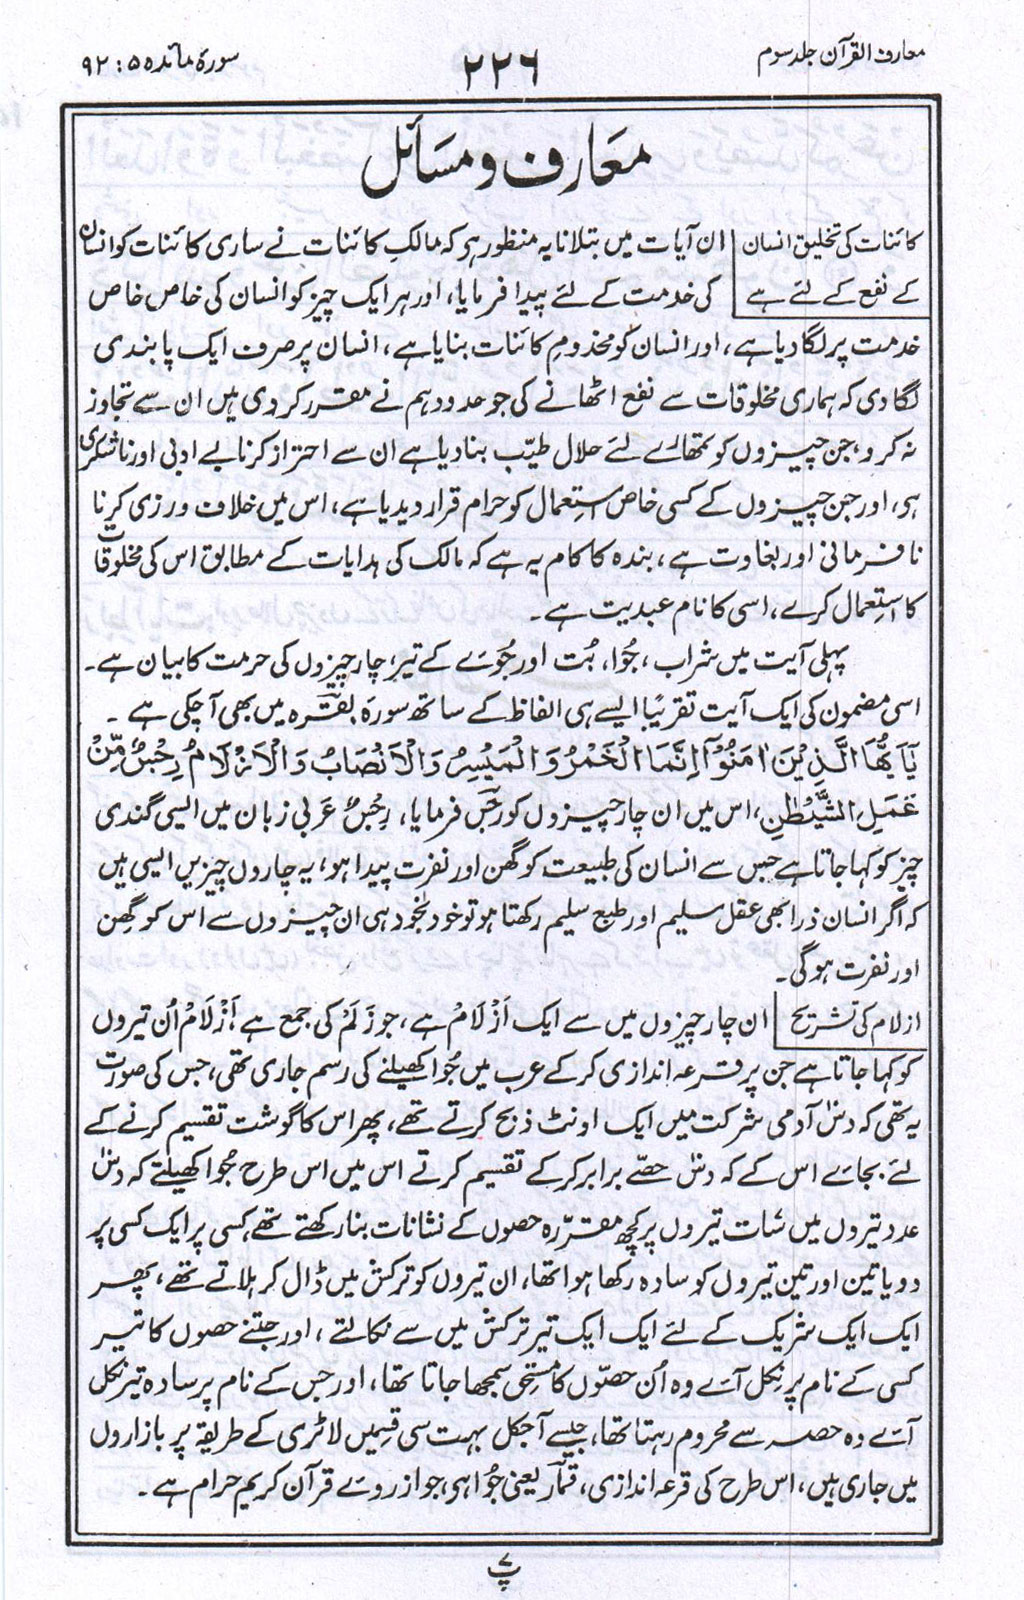 معارف القرآن جلد سوم
۲۲۶
سورۂ مائدہ ۵ : ۹۲
معارف و مسائل
کائنات کی تخلیق انسان ان آیات میں بتلانا یہ منظور ہو کہ مالکِ کائنات نے ساری کائنات کو انسان
کے نفع کے لئے ہے کی خدمت کے لئے پیدا فرمایا، اور ہر ایک چیز کو انسان کی خاص خاص
خدمت پر لگا دیا ہے، اور انسان کو مخدومِ کائنات بنایا ہے، انسان پر صرف ایک پابندی
لگا دی کہ ہماری مخلوقات سے نفع اٹھانے کی جو حدود ہم نے مقرر کر دی ہیں ان سے تجاوز
نہ کرو، جن چیزوں کو تمھارے لئے حلال طیّب بنا دیا ہے ان سے احتراز کرنا بے ادبی اور ناشکری
ہی، اور جن چیزوں کے کسی خاص استعمال کو حرام قرار دیدیا ہے، اس میں خلاف ورزی کرنا
نافرمانی اور بغاوت ہے، بندہ کا کام یہ ہے کہ مالک کی ہدایات کے مطابق اس کی مخلوقات
کا استعمال کرے، اسی کا نام عبدیت ہے۔
پہلی آیت میں شراب، جُوا، بُت اور جُوئے کے تیر، چار چیزوں کی حرمت کا بیان ہے۔
اسی مضمون کی ایک آیت تقریبًا ایسے ہی الفاظ کے ساتھ سورۂ بقرہ میں بھی آچکی ہے۔
یٰۤاَیُّهَا الَّذِیْنَ اٰمَنُوْۤا اِنَّمَا الْخَمْرُ وَالْمَیْسِرُ وَالْاَنْصَابُ وَالْاَزْلَامُ رِجْسٌ مِّنْ
عَمَلِ الشَّیْطٰنِ، اس میں ان چار چیزوں کو رجس فرمایا، رِجْسٌ عربی زبان میں ایسی گندی
چیز کو کہا جاتا ہے جس سے انسان کی طبیعت کو گھن اور نفرت پیدا ہو، یہ چاروں چیزیں ایسی ہیں
کہ اگر انسان ذرا بھی عقلِ سلیم اور طبعِ سلیم رکھتا ہو تو خود بخود ہی ان چیزوں سے اس کو گھن
اور نفرت ہوگی۔
ازلام کی تشریح ان چار چیزوں میں سے ایک اَزْلَامْ ہے، جو زَلَمْ کی جمع ہے، اَزْلَامْ اُن تیروں
کو کہا جاتا ہے جن پر قرعہ اندازی کرکے عرب میں جُوا کھیلنے کی رسم جاری تھی، جس کی صورت
یہ تھی کہ دس آدمی شرکت میں ایک اونٹ ذبح کرتے تھے، پھر اس کا گوشت تقسیم کرنے کے
لئے بجائے اس کے کہ دس حصّے برابر کرکے تقسیم کرتے اس میں اس طرح جُوا کھیلتے کہ دس
عدد تیروں میں سات تیروں پر کچھ مقرّرہ حصوں کے نشانات بنا رکھتے تھے، کسی پر ایک کسی پر
دو یا تین اور تین تیروں کو سادہ رکھا ہوا تھا، ان تیروں کو ترکش میں ڈال کر ہلاتے تھے، پھر
ایک ایک شریک کے لئے ایک ایک تیر ترکش میں سے نکالتے، اور جتنے حصوں کا تیر
کسی کے نام پر نکل آئے وہ اُن حصّوں کا مستحق سمجھا جاتا تھا، اور جس کے نام پر سادہ تیر نکل
آئے وہ حصہ سے محروم رہتا تھا، جیسے آجکل بہت سی قسمیں لاٹری کے طریقہ پر بازاروں
میں جاری ہیں، اس طرح کی قرعہ اندازی، قمار یعنی جُوا ہی، جو از روئے قرآن کریم حرام ہے۔